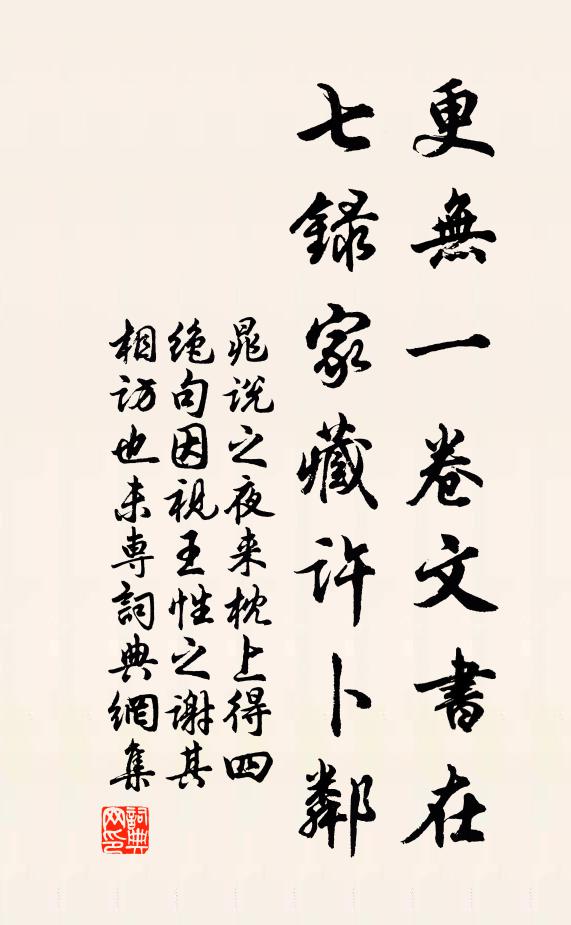 更無一卷文書在
七録家藏許卜鄰
晁說之夜来枕上得四
絶句因視王性之謝其
相訪也未専詞典網集
詞典网印